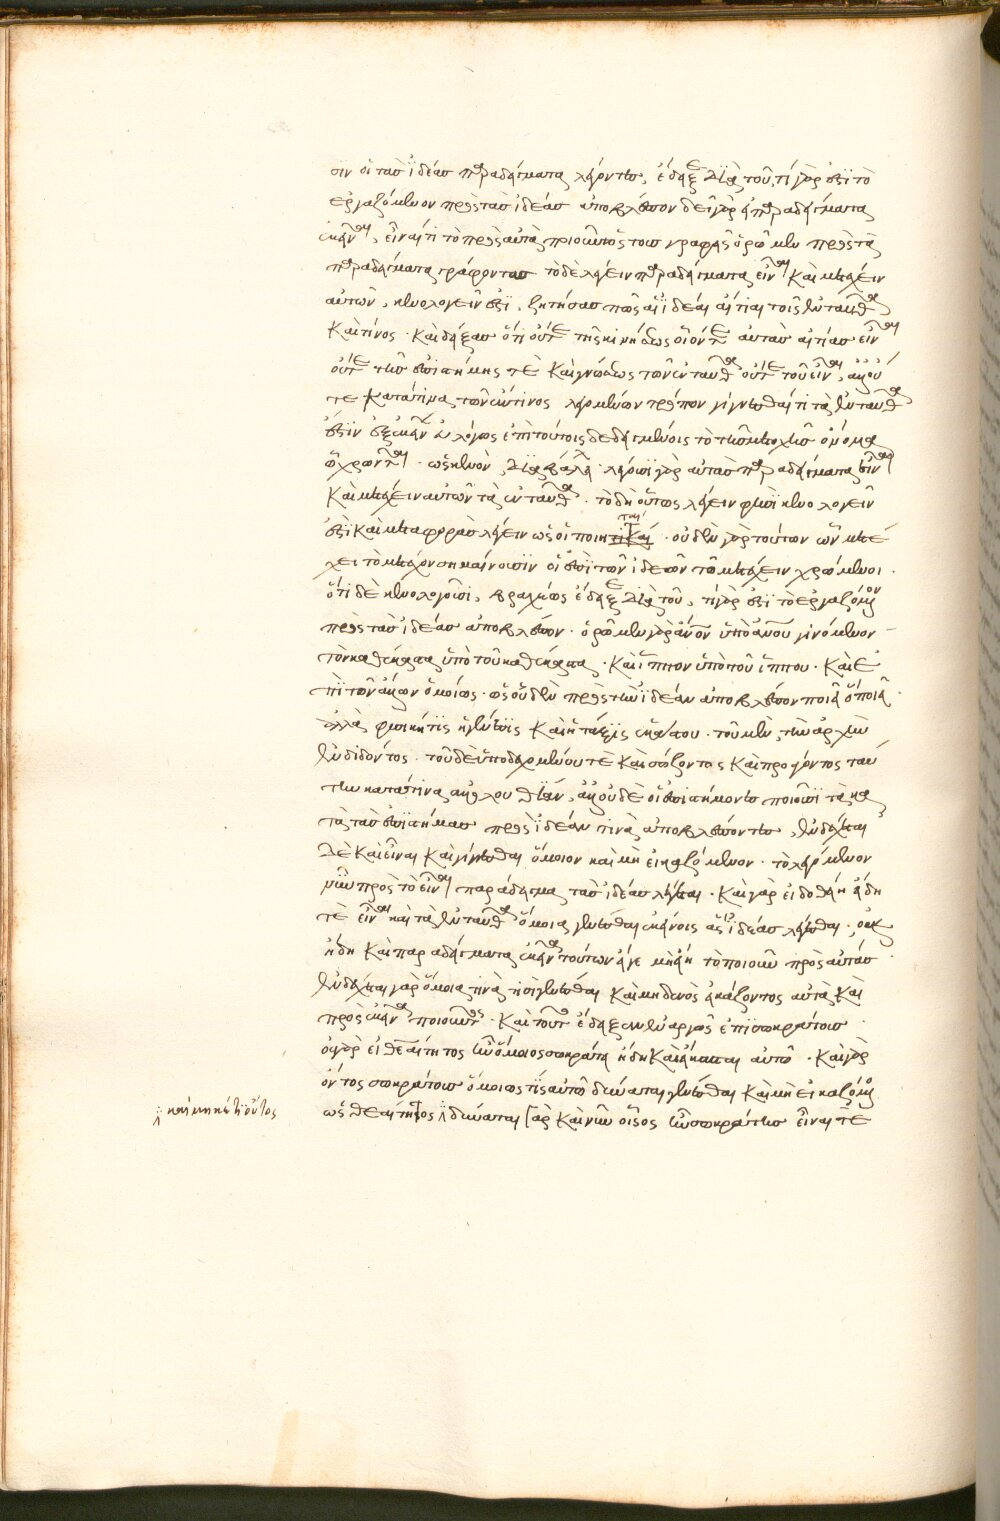 σιν οἱ τὰσ ἰδέασ παραδείγματα λέγοντεσ, ἔδειξε διὰ τοῦ, τί γάρ ἐστι τὸ
ἐργαζόμενον πρὸς τὰσ ἰδέασ ἀποβλέπον δεῖ γὰρ ἃ παραδείγματα
ἐκεῖναι, εἶναί τι τὸ πρὸς αὐτὰ ποιοῦν ὡς τοισ γραφεῖς ὁρῶμεν πρὸς τὰ
παραδείγματα γράφοντασ τὸ δὲ λέγειν παραδείγματα εἶναι καὶ μετέχειν
αὐτῶν, κενολογεῖν ἐστὶ, ζητήσασ πῶς αἱ ἰδέαι αἴτιαι τοῖς ἐνταῦθα
καὶ τίνος. καὶ δείξασ ὅτι οὔτε τῆς κινήσεως οἷόν τε αὐτασ αἰτίασ εἶναι
οὔτε τῆσ ἐπιστήμης τε καὶ γνώσεως τῶν ἐνταῦθα οὔτε τοῦ εἶναι, ἀλλ' οὔ
τε κατά τινα τῶν ἔκ τινος λεγομένων τρόπον γίγνεσθαί τι τὰ ἐνταῦθα
ἐστιν ἐξ ἐκείνων εὐλόγως ἐπὶ τούτοις δεδειγμένοις τὸ τῆσ μετοχῆσ ὄνομα
ᾧ χρῶνται. ὡς κενὸν διαβάλλει. λέγουσι γὰρ αὐτασ παραδείγματα εἶναι
καὶ μετέχειν αὐτῶν τὰ ἐνταῦθα. τὸ δὴ οὕτως λέγειν φησὶ κενολογεῖν
ἐστὶ καὶ μεταφορασ λέγειν ὡς οἱ ποιηταί. οὐδὲν γὰρ τούτων ὧν μετέ
χει τὸ μετέχον σημαίνουσιν οἱ ἐπὶ τῶν ἰδεῶν τῷ μετέχειν χρώμενοι.
ὅτι δὲ κενολογοῦσι, βραχέως ἔδειξε διὰ τοῦ, τί γάρ ἐστι τὸ ἐργαζόμενον
πρὸς τὰσ ἰδέασ ἀποβλέπον. ὁρῶμεν γὰρ ἄνθρωπον ὑπὸ ἀνθρώπου γινόμενον
τὸν καθέκαστα ὑπὸ τοῦ καθέκαστα. καὶ ἵππον ὑπὸ τοῦ ἵππου. καὶ ἐ
πὶ τῶν ἄλλων ὁμοίως. ὡς οὐδὲν πρὸς τὴν ἰδέαν ἀποβλέπον ποιεῖ ὃ ποιεῖ.
ἀλλὰ φυσική τις ἡ γένεσις καὶ ἡ τάξις ἑκάστου. τοῦ μὲν, τὴν ἀρχὴν
ἐνδιδόντος. τοῦ δὲ ὑποδεχομένου τὲ καὶ σώζοντος καὶ προάγοντος ταύ
την κατά τινα ἀκολουθίαν, ἀλλ' οὐδὲ οἱ ἐπιστήμονεσ ποιοῦσι τὰ κα
τὰ τὰσ ἐπιστήμασ πρὸς ἰδέαν τινὰ ἀποβλέποντεσ, ἐνδέχεται
δὲ καὶ εἶναι καὶ γίνεσθαι ὅμοιον καὶ μὴ εἰκαζόμενον. τὸ λεγόμενον
νῦν πρὸς τὸ εἶναι παράδειγμα τασ ἰδέασ λέγεται. καὶ γὰρ εἰ δοθείη εἴδη
τὲ εἶναι καὶ τὰ ἐνταῦθα ὅμοια γίνεσθαι ἐκείνοις ἃς ἰδέασ λέγεσθαι, οὐκ
ἤδη καὶ παραδείγματα ἐκεῖνα τούτων εἴγε μὴ εἴη τὸ ποιοῦν πρὸς αὐτάσ
ἐνδέχεται γὰρ ὅμοια τινά τισι γίνεσθαι καὶ μηδενὸς εἰκάζοντος αὐτὰ καὶ
πρὸς ἐκεῖνα ποιοῦντος. καὶ τοῦτο ἔδειξεν ἐναργῶς ἐπὶ σωκράτουσ.
οὐ γὰρ εἰ θεαίτητος ἦν ὅμοιος σωκράτει ἤδη καὶ εἴκασται αὐτῷ. καὶ γὰρ
ὄντος σωκράτουσ ὅμοιος τίς αὐτῷ δύναται γενέσθαι καὶ μὴ εἰκαζόμενος
ὡς θεαίτητος δύναται γὰρ καὶ νῦν οἷος ἦν σωκράτησ εἶναι τὲ
καὶ μηκέτι ὄντος